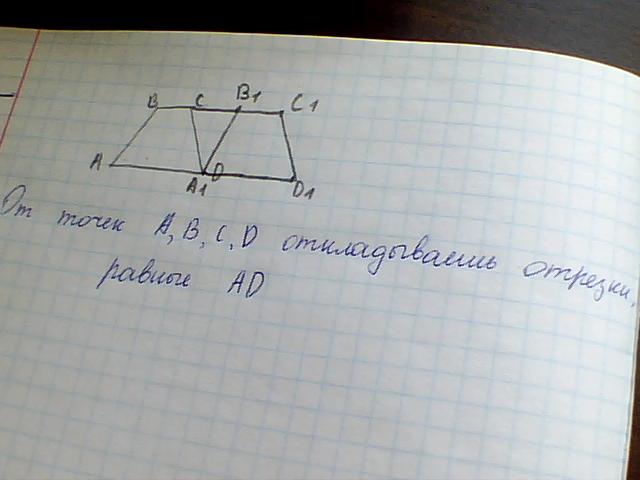 B C B1 C1
A A1 D D1
От точек A, B, C, D откладываешь отрезки,
равные AD